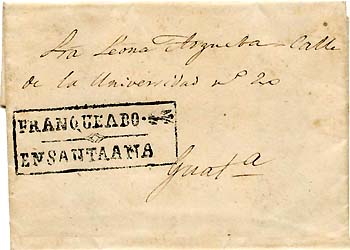 Sra Leona Argueta - Calle
de la Universidad nº 20
FRANQUEADO
EN SANTA ANA
Guata